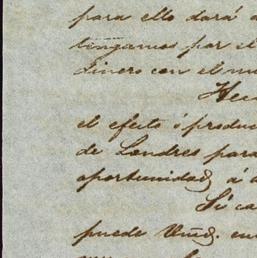 para ello dará
tengamos por el
dinero con el
el efecto ó produc
de Londres para
oportunidad, á
Si ca
puede Umd. en